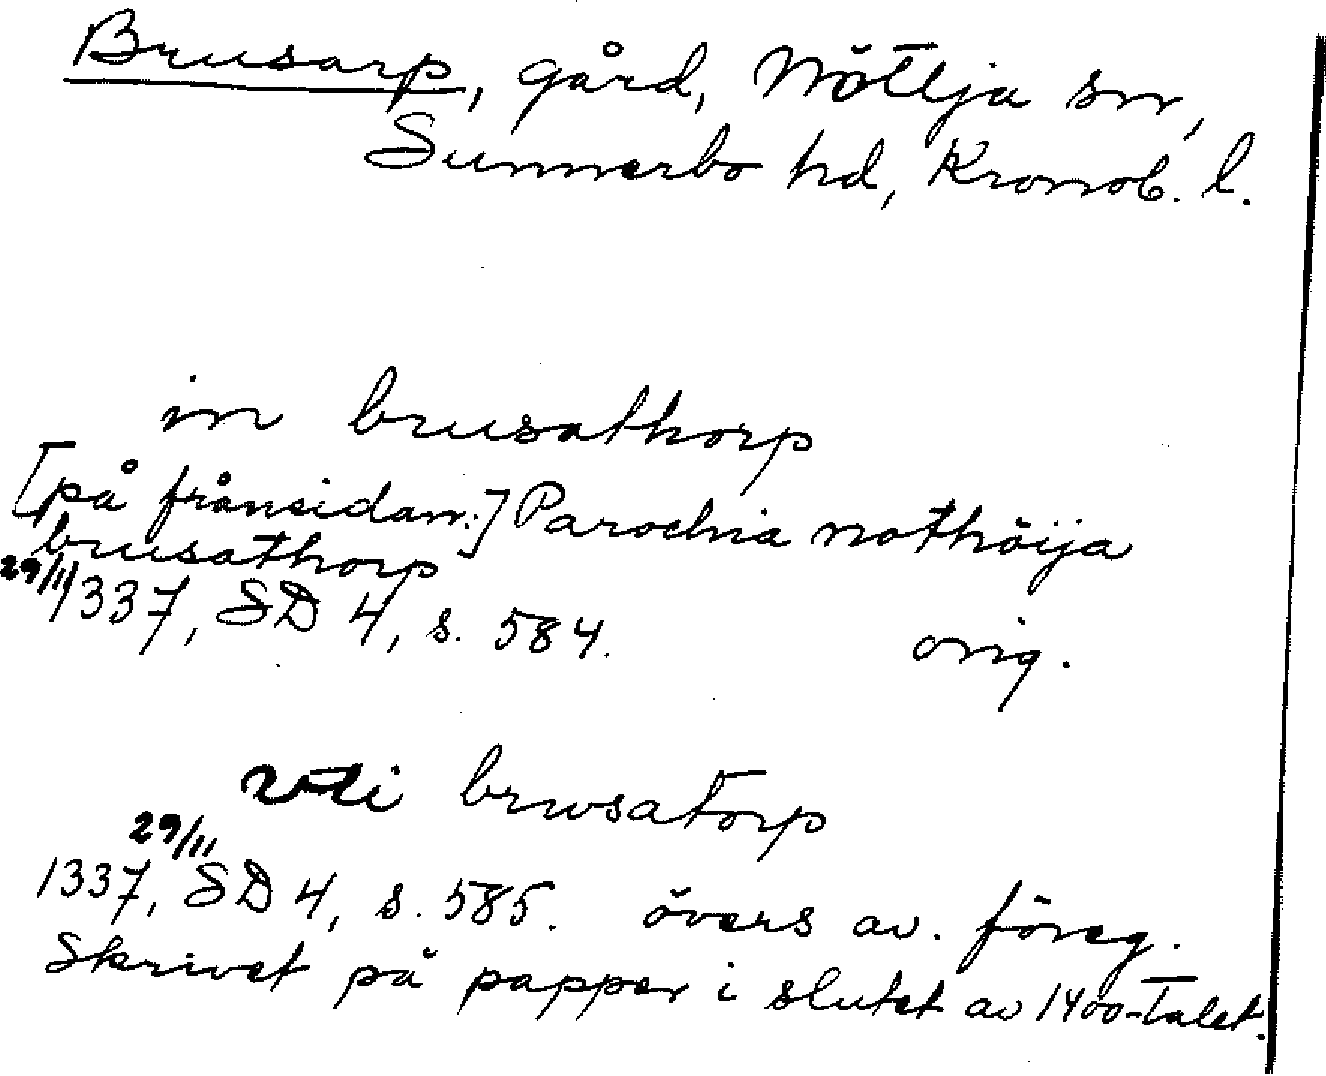 Brusarp, gård, Nöttja sn,
Sunnerbo hd, Kronob. l.
in brusathorp
[på frånsidan:] Parochia nathöija
brusathorp
29/11 1337, SD 4, s. 584. orig.
vti brwsatorp
29/11
1337, SD 4, s. 585. övers av. föreg.
Skrivet på papper i slutet av 1400-talet.